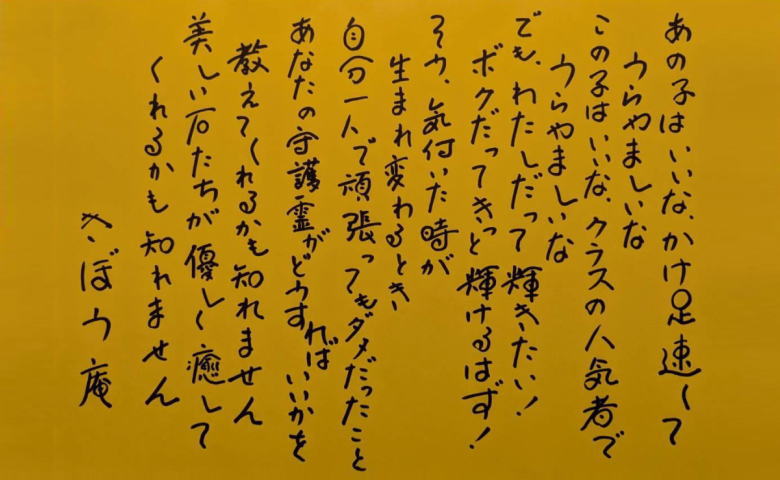 あの子はいいな、かけ足速くて
うらやましいな
この子はいいな、クラスの人気者で
うらやましいな
でも、わたしだって輝きたい!
ボクだってきっと輝けるはず!
そう、気付いた時が
生まれ変わるとき
自分一人で頑張ってもダメだったこと
あなたの守護霊がどうすればいいかを
教えてくれるかも知れません
美しい石たちが優しく癒して
くれるかも知れません
きぼう庵